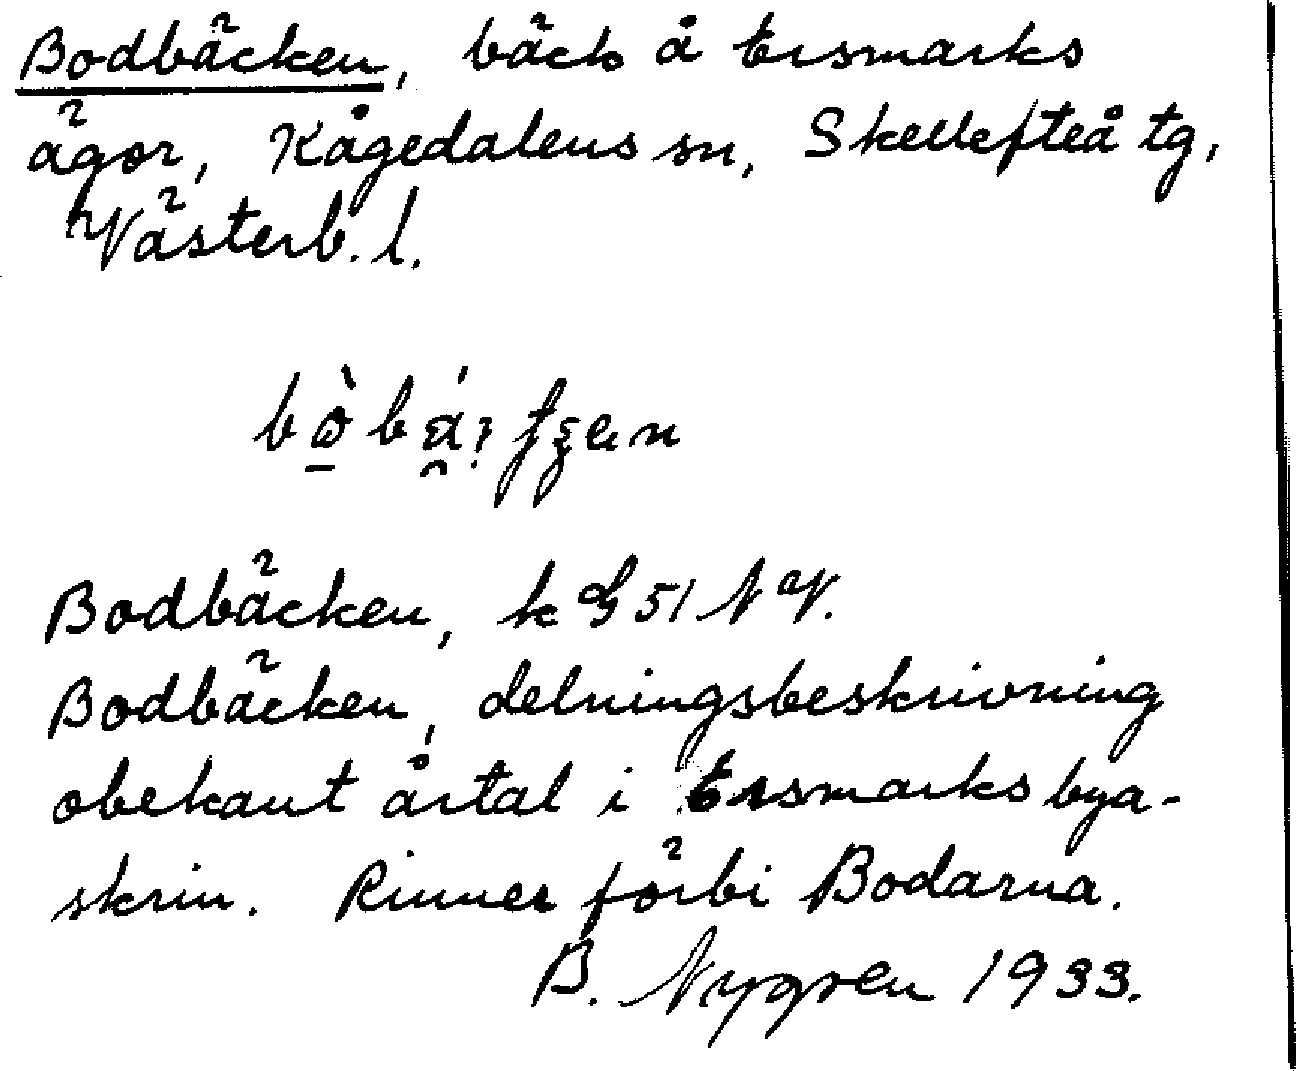 Bodbäcken, bäck å Ersmarks
ägor, Kågedalens sn, Skellefteå tg,
Västerb. l.
Bodbäcken, k G 51 NV.
Bodbäcken, delningsbeskrivning
obekant årtal i Ersmarks bya-
skrin. Rinner förbi Bodarna.
B. Nygren 1933.